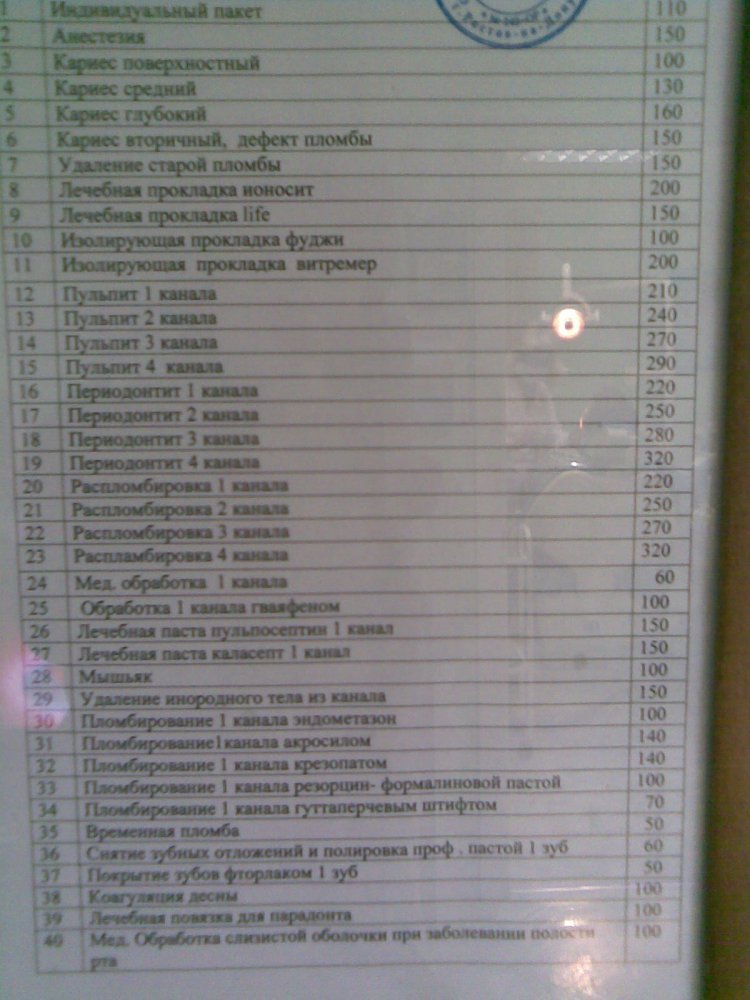 г. Ростов-на-Дону
1 Индивидуальный пакет 110
2 Анестезия 150
3 Кариес поверхностный 100
4 Кариес средний 130
5 Кариес глубокий 160
6 Кариес вторичный, дефект пломбы 150
7 Удаление старой пломбы 150
8 Лечебная прокладка ионосит 200
9 Лечебная прокладка life 150
10 Изолирующая прокладка фуджи 100
11 Изолирующая прокладка витремер 200
12 Пульпит 1 канала 210
13 Пульпит 2 канала 240
14 Пульпит 3 канала 270
15 Пульпит 4 канала 290
16 Периодонтит 1 канала 220
17 Периодонтит 2 канала 250
18 Периодонтит 3 канала 280
19 Периодонтит 4 канала 320
20 Распломбировка 1 канала 220
21 Распломбировка 2 канала 250
22 Распломбировка 3 канала 270
23 Распламбировка 4 канала 320
24 Мед. обработка 1 канала 60
25 Обработка 1 канала гваяфеном 100
26 Лечебная паста пульпосептин 1 канал 150
27 Лечебная паста каласепт 1 канал 150
28 Мышьяк 100
29 Удаление инородного тела из канала 150
30 Пломбирование 1 канала эндометазон 100
31 Пломбирование1канала акросилом 140
32 Пломбирование 1 канала крезопатом 140
33 Пломбирование 1 канала резорцин- формалиновой пастой 100
34 Пломбирование 1 канала гуттаперчевым штифтом 70
35 Временная пломба 50
36 Снятие зубных отложений и полировка проф . пастой 1 зуб 60
37 Покрытие зубов фторлаком 1 зуб 50
38 Коагуляция десны 100
39 Лечебная повязка для парадонта 100
40 Мед. Обработка слизистой оболочки при заболевании полости 100
рта